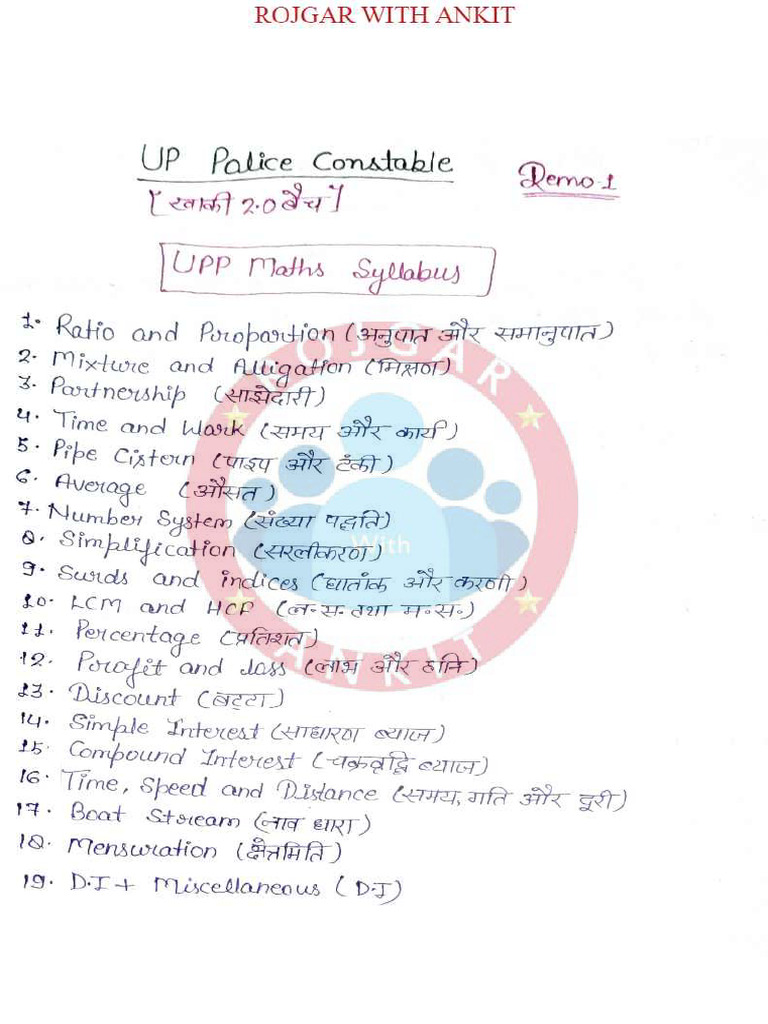 ROJGAR WITH ANKIT
UP Police Constable
[खाकी 2.0 बैच]
Demo-1
UPP Maths Syllabus
1. Ratio and Proportion (अनुपात और समानुपात)
2. Mixture and Alligation (मिश्रण)
3. Partnership (साझेदारी)
4. Time and Work (समय और कार्य)
5. Pipe Cistern (पाइप और टंकी)
6. Average (औसत)
7. Number System (संख्या पद्धति)
8. Simplification (सरलीकरण)
9. Surds and indices (घातांक और करणी)
10. LCM and HCF (ल.स. तथा म.स.)
11. Percentage (प्रतिशत)
12. Profit and loss (लाभ और हानि)
13. Discount (बट्टा)
14. Simple Interest (साधारण ब्याज)
15. Compound Interest (चक्रवृद्धि ब्याज)
16. Time, Speed and Distance (समय, गति और दूरी)
17. Boat Stream (नाव धारा)
18. Mensuration (क्षेत्रमिति)
19. D.I + Miscellaneous (D.I)
ROJGAR
With
ANKIT